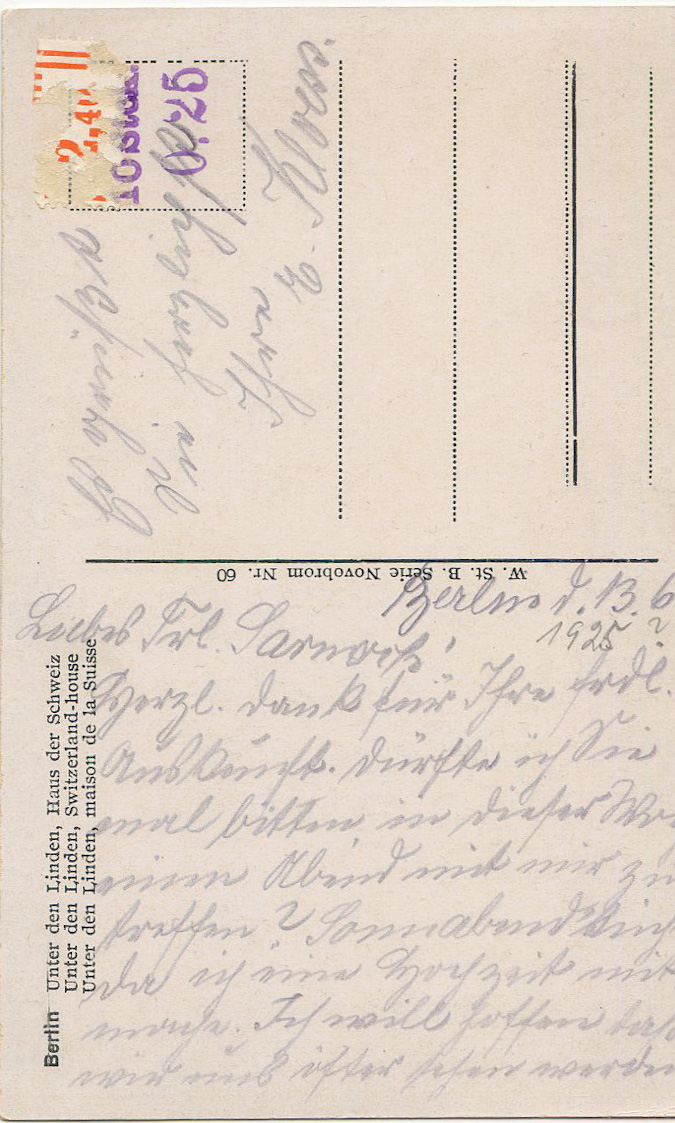 Berlin d. 13. 6
1925 ?
Liebes Frl.
Herzl. Dank für Ihre frdl.
Auskunft. Dürfte ich Sie
mal bitten in dieser Wo
einen Abend mit mir zu
treffen? Sonnabend nicht
da ich eine Hochzeit mit
mache. Ich will hoffen daß
wir uns öfter sehen werden
Ihre
E.
W. St. B. Serie Novobrom Nr. 60
Berlin Unter den Linden, Haus der Schweiz
Unter den Linden, Switzerland-house
Unter den Linden, maison de la Suisse
2,40
10 Stck.
gz.0